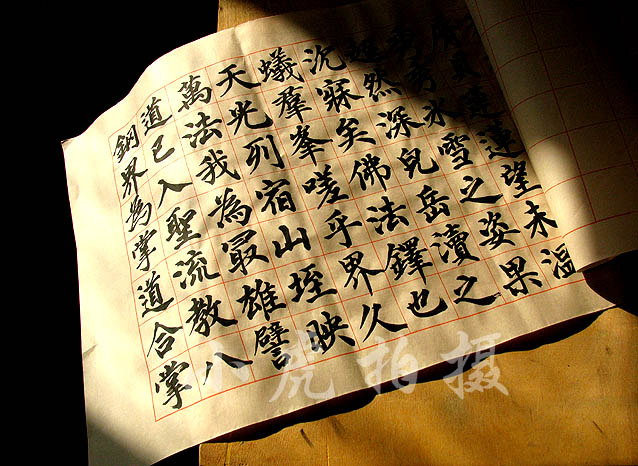 蓮望未温
秀冰雪之姿果
然深皃岳瀆之
沉寐矣佛法鐸也
蟻羣峯嗟乎界久
天光列宿山垤映
萬法我為最雄譬
道已入聖流教八
鋼界為掌道合掌
小虎拍摄